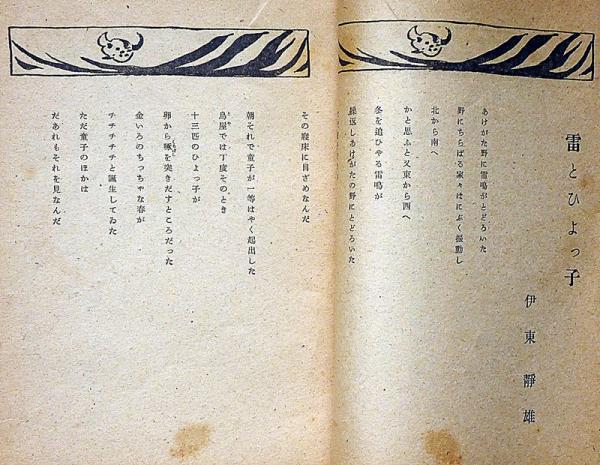 雷とひよっ子
伊東靜雄
あけがた野に雷鳴がとどろいた
野にちらばる家々はにぶく振動し
北から南へ
かと思ふと又東から西へ
冬を追ひやる雷鳴が
繰返しあけがたの野にとどろいた
その寢床に目ざめなんだ
朝それで童子が一等はやく起出した
鳥屋では丁度そのとき
十三匹のひよっ子が
卵から喙を突きだすところだった
金いろのちっちゃな春が
チチチチチと誕生してゐた
ただ童子のほかは
だあれもそれを見なんだ